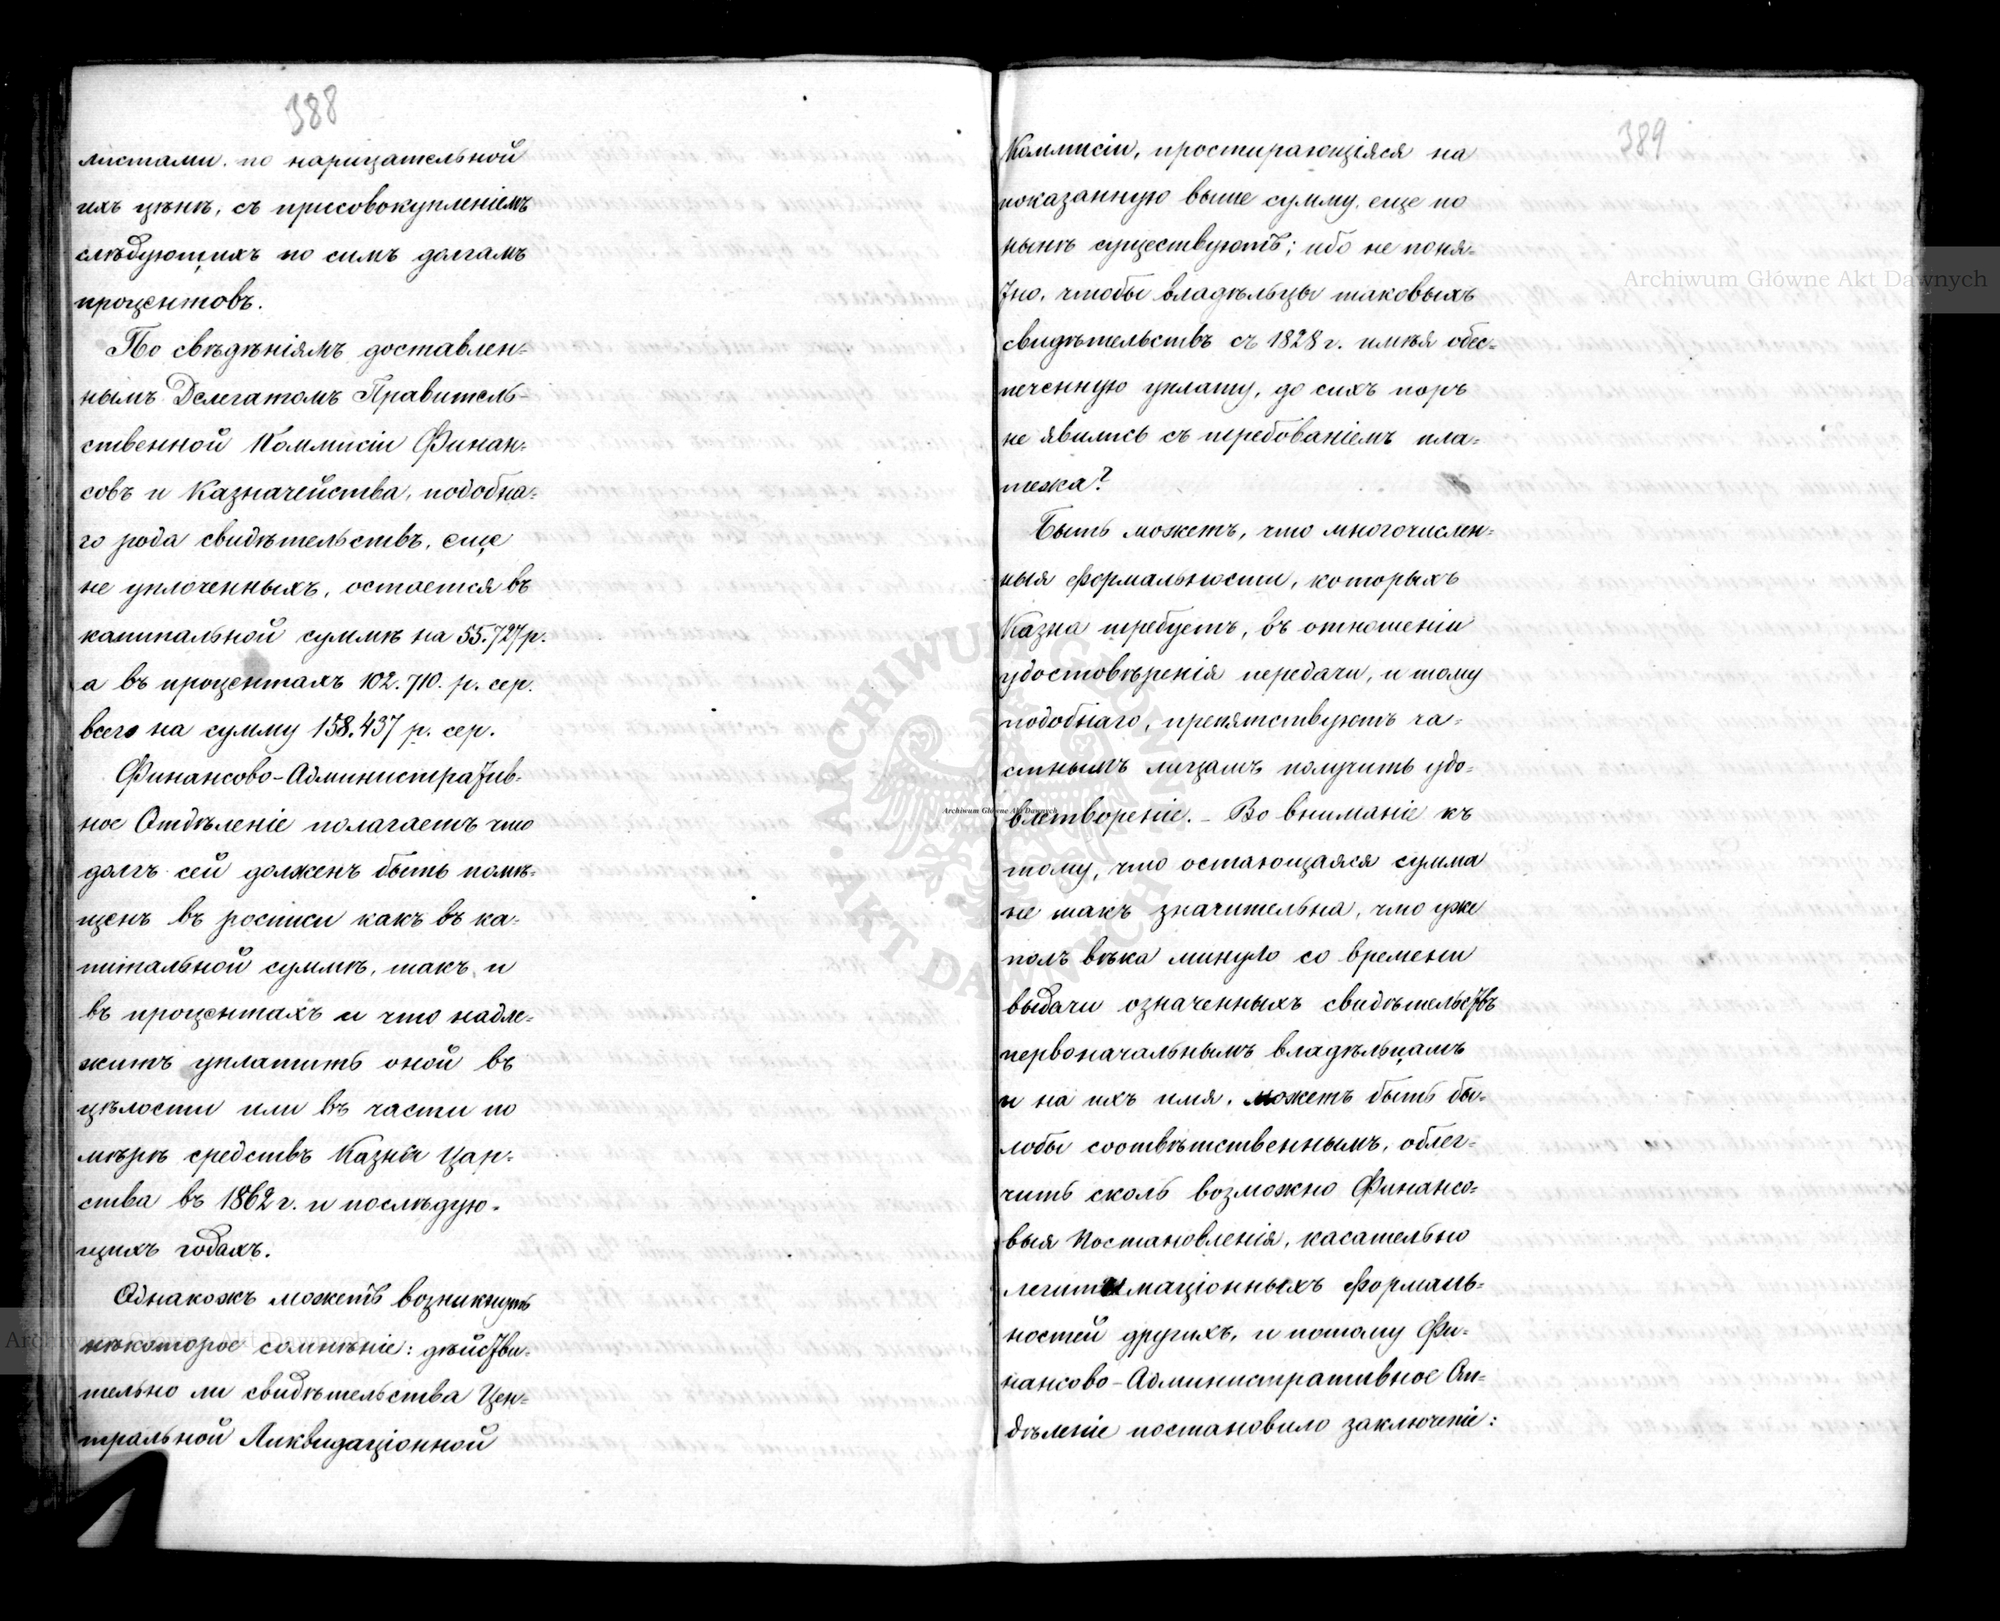 388
листами, по нарицательной
ихъ цѣнѣ, съ присовокупленіемъ
слѣдующихъ по симъ долгамъ
процентовъ.
По свѣдѣніямъ доставлен-
нымъ Делегатомъ Правитель-
ственной Коммисіи Финан-
совъ и Казначейства, подобна-
го рода свидѣтельствъ, еще
не уплоченныхъ, остается въ
капитальной суммѣ на 55.727 р.
а въ процентахъ 102.710. р. сер.
всего на сумму 158.437 р. сер.
Финансово-Административ-
ное Отдѣленіе полагаетъ что
долгъ сей долженъ быть помѣ-
щенъ въ росписи какъ въ ка-
питальной суммѣ, такъ и
въ процентахъ и что надле-
житъ уплатить оной въ
цѣлости или въ части по
мѣрѣ средствъ Казны Цар-
ства въ 1862 г. и послѣдую-
щихъ годахъ.
Однакожъ можетъ возникнуть
нѣкоторое сомнѣніе: дѣйстви-
тельно ли свидѣтельства Цен-
тральной Ликвидаціонной
389
Коммисіи, простирающіяся на
показанную выше сумму, еще по
нынѣ существуютъ; ибо не поня-
тно, чтобы владѣльцы таковыхъ
свидѣтельствъ съ 1828 г. имѣя обез-
печенную уплату, до сихъ поръ
не явились съ требованіемъ пла-
тежа?
Быть можетъ, что многочислен-
ныя формальности, которыхъ
Казна требуетъ, въ отношеніи
удостовѣренія передачи, и тому
подобнаго, препятствуютъ ча-
стнымъ лицамъ получить удо-
влетвореніе. - Во вниманіе къ
тому, что остающаяся сумма
не такъ значительна, что уже
полъ вѣка минуло со времени
выдачи означенныхъ свидѣтельствъ
первоначальнымъ владѣльцамъ
и на ихъ имя, можетъ быть бы-
лобы соотвѣтственнымъ, облег-
чить сколь возможно Финансо-
выя Постановленія, касательно
легитимаціонныхъ формаль-
ностей другихъ, и потому Фи-
нансово-Административное От-
дѣленіе постановило заключеніе:
Archiwum Główne Akt Dawnych
Archiwum Główne Akt Dawnych
Archiwum Główne Akt Dawnych
ARCHIWUM GŁÓWNE · AKT DAWNYCH ·